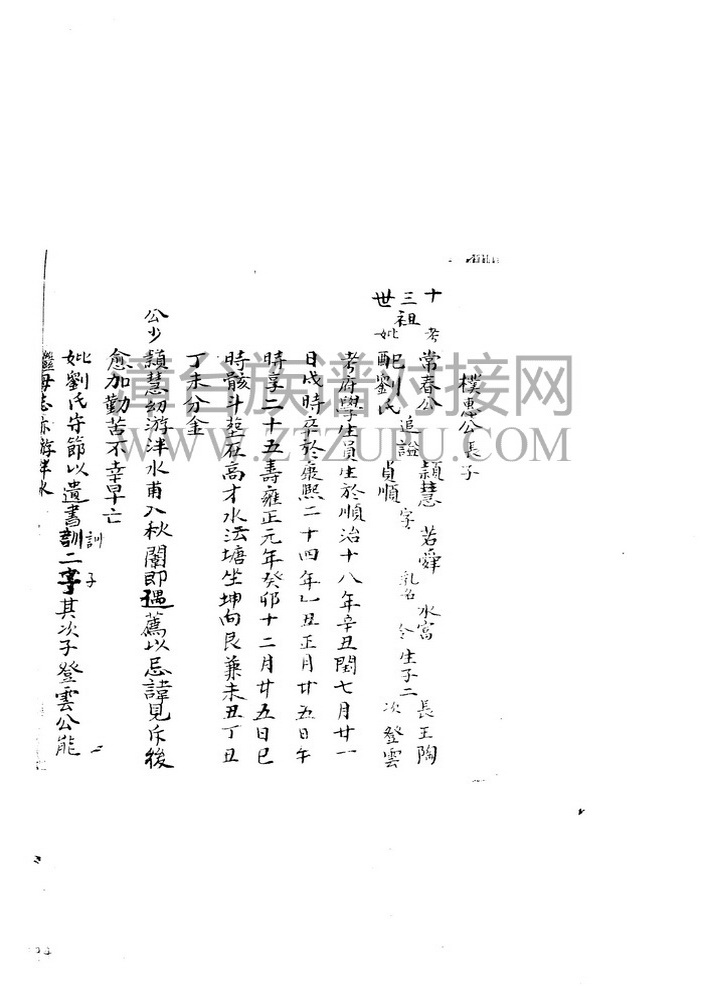 樸惠公長子
十三世祖
考常春公 穎慧 若舜 水富 長玉陶
妣配劉氏 追謚 貞順 字 乳名 令 生子二 次登雲
考府學生員生於順治十八年辛丑閏七月廿一
日戌時卒於康熙二十四年乙丑正月廿五日午
時享二十五壽雍正元年癸卯十二月廿五日巳
時骸斗塟在高才水沄塘坐坤向艮兼未丑丁丑
丁未分金
公少穎慧幼游泮水甫入秋闈即遇薦以忌諱見斥後
愈加勤苦不幸早亡
妣劉氏守節以遺書訓二字其次子登雲公能
訓 子
繼母志亦游泮水
青台族谱对接网
WWW.ZTZUPU.COM